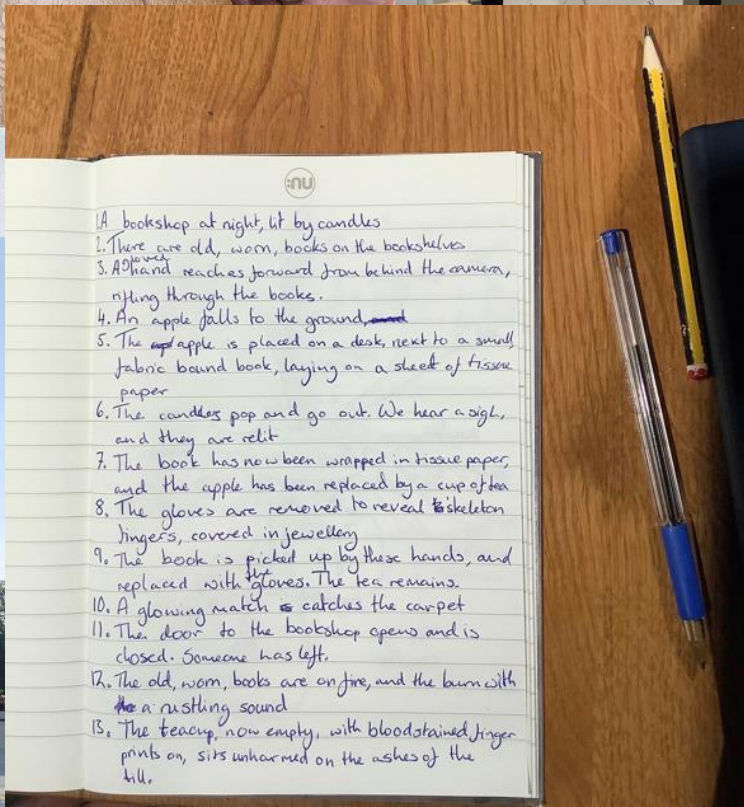 :nu
1. A bookshop at night, lit by candles
2. There are old, worn, books on the bookshelves
3. A gloved hand reaches forward from behind the camera,
rifling through the books.
4. An apple falls to the ground, and
5. The apple is placed on a desk, next to a small,
fabric bound book, laying on a sheet of tissue
paper
6. The candles pop and go out. We hear a sigh,
and they are relit
7. The book has now been wrapped in tissue paper,
and the apple has been replaced by a cup of tea
8. The gloves are removed to reveal skeleton
fingers, covered in jewellery
9. The book is picked up by these hands, and
replaced with the gloves. The tea remains.
10. A glowing match catches the carpet
11. The door to the bookshop opens and is
closed. Someone has left.
12. The old, worn, books are on fire, and the burn with
a rustling sound
13. The teacup, now empty, with bloodstained finger
prints on, sits unharmed on the ashes of the
till.